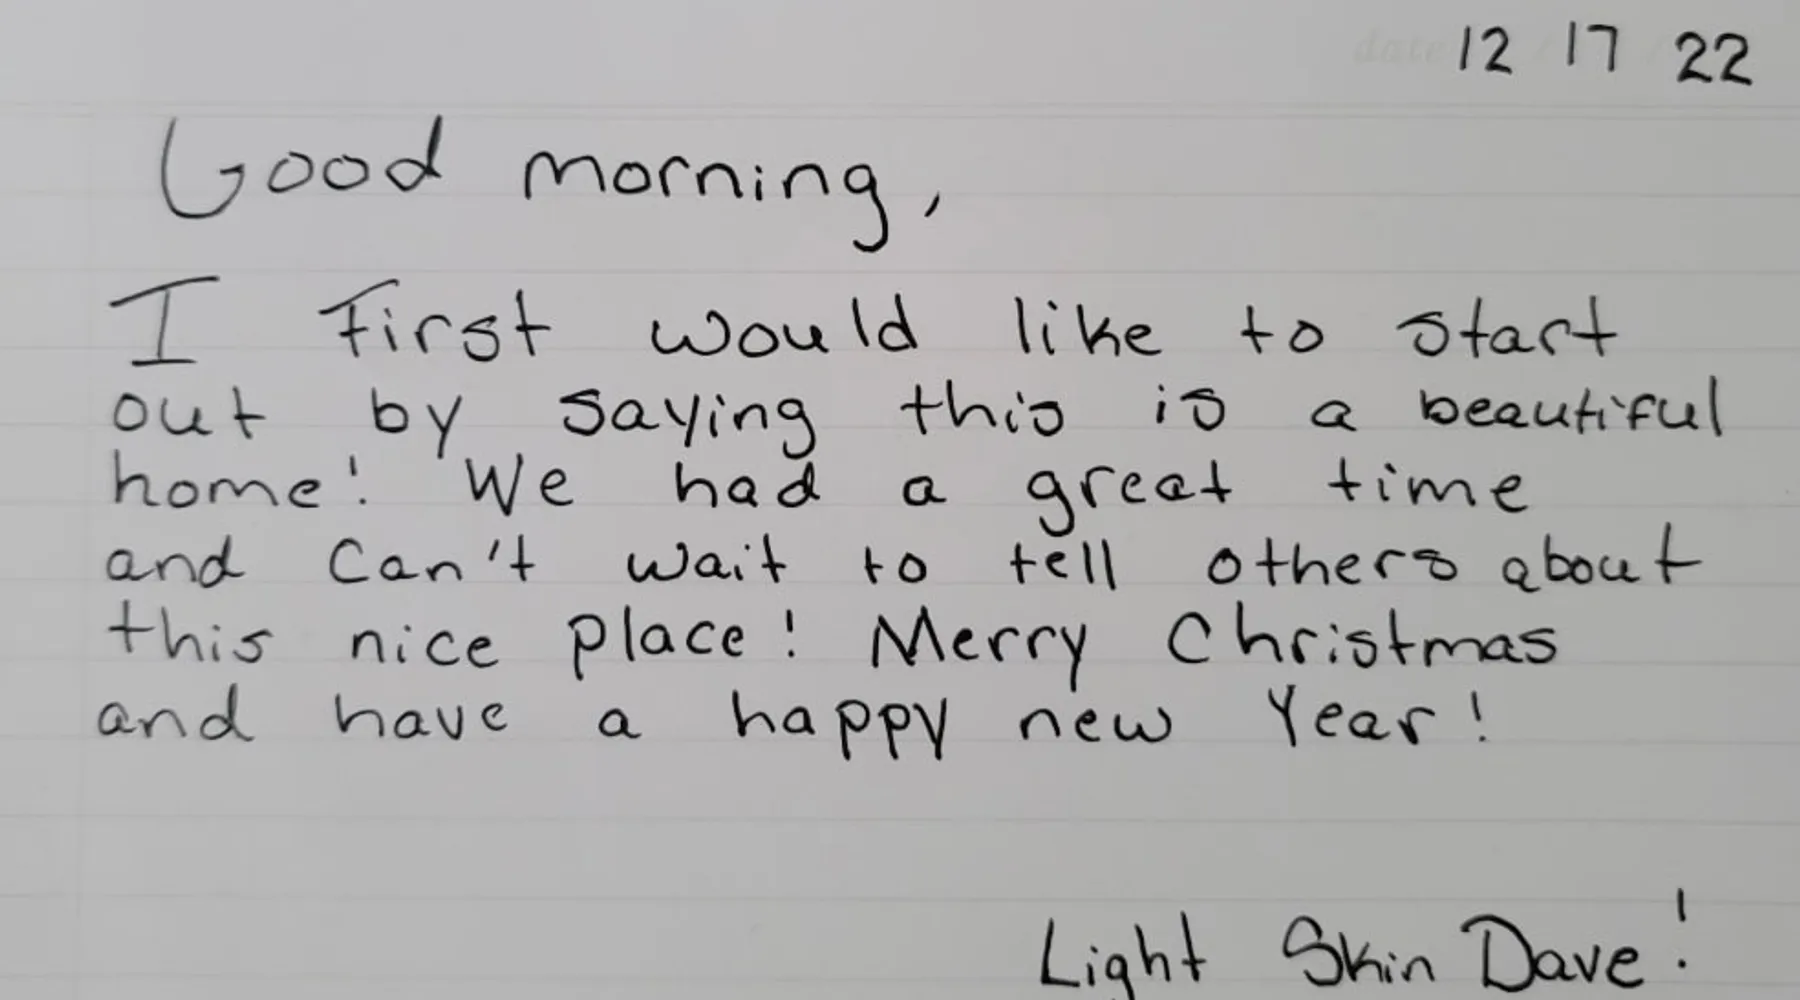 date 12 17 22
Good morning,
I First would like to start
out by saying this is a beautiful
home! We had a great time
and Can't wait to tell others about
this nice place! Merry Christmas
and have a happy new Year!
Light Skin Dave!